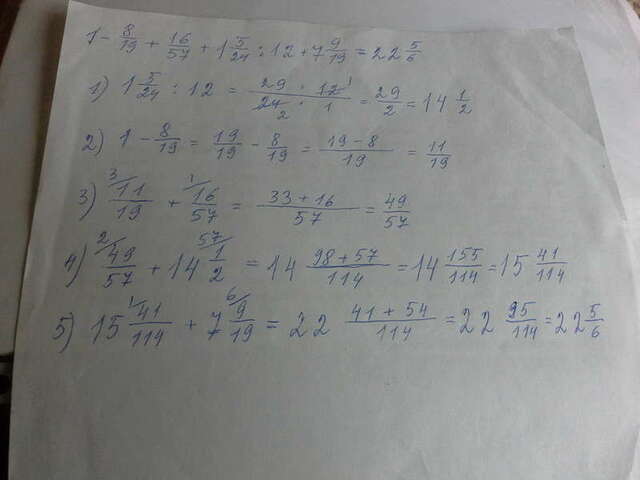 1 - 8/19 + 16/57 + 1 5/24 : 12 + 7 9/19 = 22 5/6
1) 1 5/24 : 12 = 29 · 12 1 / 24 2 · 1 = 29/2 = 14 1/2
2) 1 - 8/19 = 19/19 - 8/19 = 19-8/19 = 11/19
3) 3/ 11/19 + 1/ 16/57 = 33+16/57 = 49/57
4) 2/ 49/57 + 14 57/ 1/2 = 14 98+57/114 = 14 155/114 = 15 41/114
5) 15 1/ 41/114 + 7 6/ 9/19 = 22 41+54/114 = 22 95/114 = 22 5/6